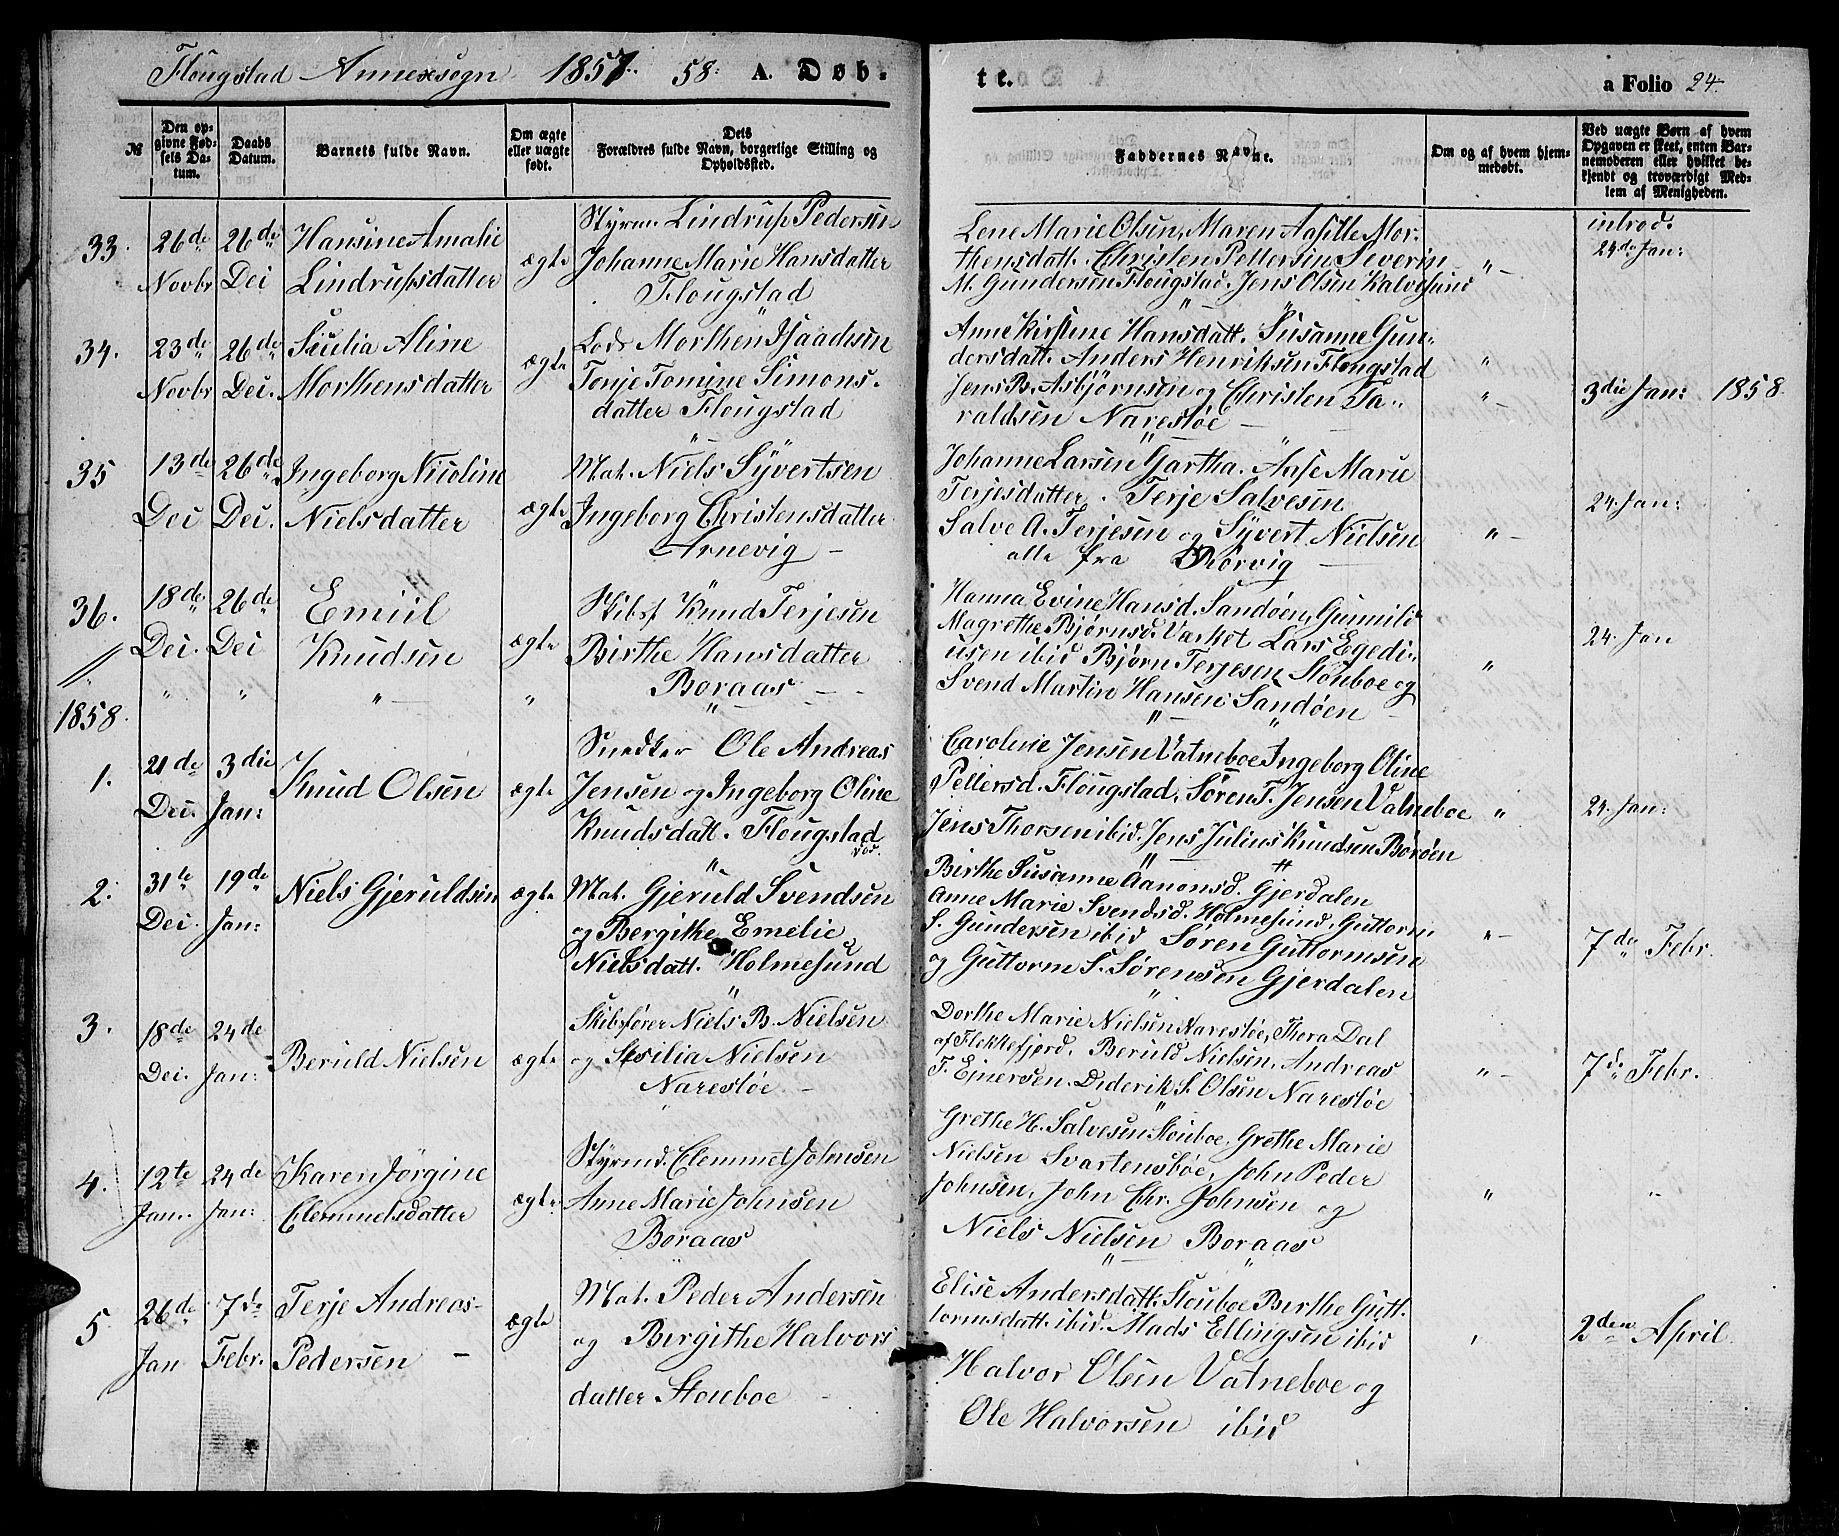 Flougstad Annexsogn 1857. 58: A. Døb- te. a Folio 24.
№
Den op-
givne Fød-
sels Da-
tum.
Daabs
Datum.
Barnets fulde Navn.
Om ægte
eller uægte
født.
Dets
Forældres fulde Navn, borgerlige Stilling og
Opholdssted.
Faddernes Navne.
Om og af hvem hjem-
medøbt.
Ved uægte Børn af hvem
Opgaven er skeet, enten Bar-
nemoderen eller hvilket be-
kjendt og troværdigt Med-
lem af Menigheden.
33.
26de
Novbr
26de
Dec
Hansine Amalie
Lindrupsdatter
ægte
Styrm. Lindrup Pedersen
Johanne Marie Hansdatter
Flougstad
Lene Marie Olsen, Maren Aasille Mor-
thensdatt. Christen Pettersen Severin
M. Gundersen Flougstad. Jens Olsen Kalvesund
introd.
24de Jan:
34.
23de
Novbr
26de
Dec.
Sicilia Aline
Morthensdatter
ægte
Lods Morthen Isaachsen
Tonje Tomine Simons-
datter Flougstad
Anne Kirstine Hansdatt. Susanne Gun-
dersdatt. Anders Henriksen Flougstad
Jens B. Asbjørnsen og Christen Ta-
raldsen Narestøe
3die Jan: 1858.
35
13de
Dec
26de
Dec.
Ingeborg Nicoline
Nielsdatter
ægte
Mat. Niels Syvertsen
Ingeborg Christensdatter
Arnevig
Johanne Larsen Gartha. Aase Marie
Terjesdatter. Terje Salvesen
Salve A. Terjesen og Syvert Nielsen
alle fra Rørvig
24. Jan:
36.
18de
Dec.
26de
Dec
Emiil
Knudsen
ægte
Skibsf Knud Terjesen
Birthe Hansdatter
Boraas
Hanna Evine Hansd. Sandøen, Gunnild
Magrethe Bjørnsd. Varket Lars Egedi-
usen ibid Bjørn Terjesen Stouboe og
Svend Martin Hansen Sandøen
24. Jan
1858.
1.
21de
Dec.
3die
Jan:
Knud Olsen
ægte
Snedker Ole Andreas
Jensen og Ingeborg Oline
Knudsdatt. Flougstad
Caroline Jensen Vatneboe Ingeborg Oline
Pettersd. Flougstad, Søren T. Jensen Vatneboe
Jens Thorsen ibid. Jens Julius Knudsen Borøen
24. Jan:
2.
31te
Dec.
19de
Jan:
Niels Gjeruldsen
ægte
Mat. Gjeruld Svendsen
og Bergithe Emelie
Nielsdatt. Holmesund
Birthe Susanne Aanonsd. Gjerdalen
Anne Marie Svendsd. Holmesund, Guttorm
S. Gundersen ibid Søren Guttormsen
og Guttorm S. Sørensen Gjerdalen
7de Febr.
3.
18de
Dec.
24de
Jan:
Beruld Nielsen
ægte
Skibsfører Niels B. Nielsen
og Sesilia Nielsen
Narestøe
Dorthe Marie Nielsen Narestøe, Thora Dal
af Flekkefjord. Beruld Nielsen, Andreas
T. Ejnersen. Diderik S. Olsen Narestøe
7de Febr.
4.
12te
Jan.
24de
Jan:
Karen Jørgine
Clemmetsdatter
ægte
Styrmd. Clemmet Johnsen
Anne Marie Johnsen
Boraas
Grethe H. Salvesen Stouboe, Grethe Marie
Nielsen Svartensbøe, John Peder
Johnsen, John Chr. Johnsen og
Niels Nielsen Boraas
5
26de
Jan
7de
Febr.
Terje Andreas
Pedersen
ægte
Mat. Peder Andersen
og Bergithe Halvors
datter Stouboe
Elise Andersdatt. Stouboe Birthe Gutt-
tormsdatt. ibid. Mads Ellingsen ibid
Halvor Olsen Vatneboe og
Ole Halvorsen ibid
2den April.